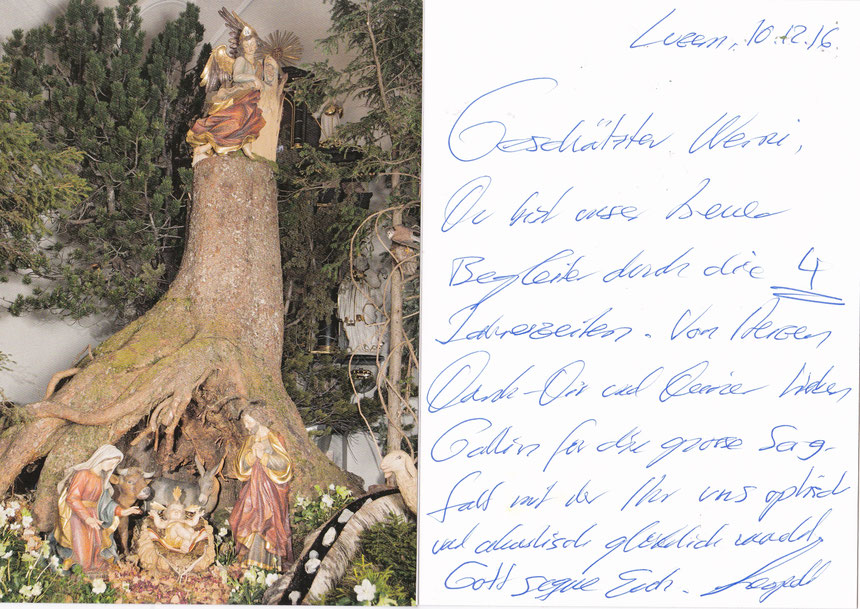 Luzern, 10.12.16
Geschätzter Werni,
Du bist unser treuer
Begleiter durch die 4
Jahreszeiten. Von Herzen
Dank Dir und Deiner lieben
Gattin für die grosse Sorg-
falt mit der Ihr uns optisch
und akustisch glücklich macht.
Gott segne Euch.